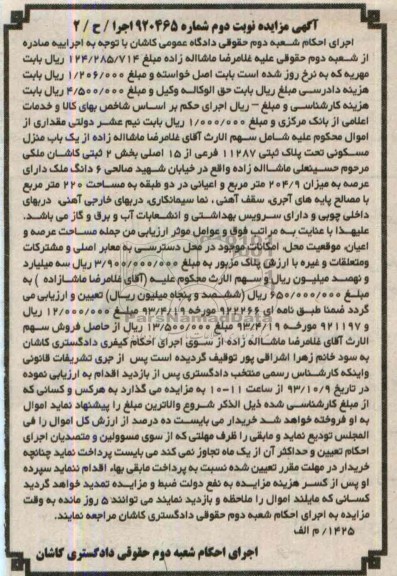 آگهی مزایده نوبت دوم شماره ۹۲۰۴۶۵/اجرا / ح / ۲
اجرای احکام شعبه دوم حقوقی دادگاه عمومی کاشان با توجه به اجراییه صادره
از شعبه دوم حقوقی علیه غلامرضا ماشااله زاده مبلغ ۱۲۴/۲۸۵/۷۱۴ ریال بابت
مهریه که به نرخ روز شده است بابت اصل خواسته و مبلغ ۱/۲۰۶/۰۰۰ ریال بابت
هزینه دادرسی مبلغ ریال بابت حق الوکاله وکیل و مبلغ ۴/۵۰۰/۰۰۰ ریال بابت
هزینه کارشناسی و مبلغ - ریال اجرای حکم بر اساس شاخص بهای کالا و خدمات
اعلامی از بانک مرکزی و مبلغ ۱/۰۰۰/۰۰۰ ریال بابت نیم عشر دولتی مقداری از
اموال محکوم علیه شامل سهم الارث آقای غلامرضا ماشااله زاده از یک باب منزل
مسکونی تحت پلاک ثبتی ۱۱۲۸۷ فرعی از ۱۵ اصلی بخش ۲ ثبتی کاشان ملکی
مرحوم حسینعلی ماشااله زاده واقع در خیابان شهید صالحی ۶ دانگ ملک دارای
عرصه به میزان ۲۰۴/۹ متر مربع و اعیانی در دو طبقه به مساحت ۲۲۰ متر مربع
با مصالح پایه های آجری، سقف آهنی ، نما سیمانکاری، دربهای خارجی آهنی، دربهای
داخلی چوبی و دارای سرویس بهداشتی و انشعابات آب و برق و گاز می باشد.
علیهذا با عنایت به مراتب فوق و عوامل موثر ارزیابی من جمله مساحت عرصه و
اعیان، موقعیت محل، امکانات موجود در محل دسترسی به معابر اصلی و مشترکات
ومتعلقات و غیره با ارزش پلاک مزبور به مبلغ ۳/۹۰۰/۰۰۰/۰۰۰ ریال سه میلیارد
و نهصد میلیون ریال و سهم الارث محکوم علیه (آقای غلامرضا ماشازاده ) به
مبلغ ۶۵۰/۰۰۰/۰۰۰ ریال (ششصد و پنجاه میلیون ریال) تعیین و ارزیابی می
گردد ضمنا طبق نامه ای ۹۲۲۲۶۶ مورخه ۹۳/۴/۱۹ مبلغ ۱۲/۰۰۰/۰۰۰ ریال
و ۹۲۱۱۹۷ مورخه ۹۳/۴/۱۹ مبلغی ۱۳/۵۰۰/۰۰۰ ریال از حاصل فروش سهم
الارث آقای غلامرضا ماشااله زاده از سوی اجرای احکام کیفری دادگستری کاشان
به سود خانم زهرا اشراقی پور توقیف گردیده است پس از جری تشریفات قانونی
واینکه کارشناس رسمی منتخب دادگستری پس از بازدید اقدام به ارزیابی نموده
در تاریخ ۹۳/۱۰/۹ از ساعت ۱۱-۱۰ به مزایده می گذارد به هرکس و کسانی که
از مبلغ کارشناسی شده ذیل الذکر شروع والاترین مبلغ را پیشنهاد نماید اموال
به او فروخته خواهد شد خریدار می بایست ده درصد از ارزش کل اموال را فی
المجلس تودیع نماید و مابقی را ظرف مهلتی که از سوی مسوولین و متصدیان اجرای
احکام تعیین و حداکثر آن از یک ماه تجاوز نمی کند می بایست پرداخت نماید چنانچه
خریدار در مهلت مقرر تعیین شده نسبت به پرداخت مابقی بهاء اقدام ننماید سپرده
او پس از کسر هزینه مزایده به نفع دولت ضبط و مزایده تمدید خواهد گردید
کسانی که مایلند اموال را ملاحظه و بازدید نمایند می توانند ۵ روز مانده به وقت
مزایده به اجرای احکام شعبه دوم حقوقی دادگستری کاشان مراجعه نمایند.
۱۴۲۵/ م الف
اجرای احکام شعبه دوم حقوقی دادگستری کاشان